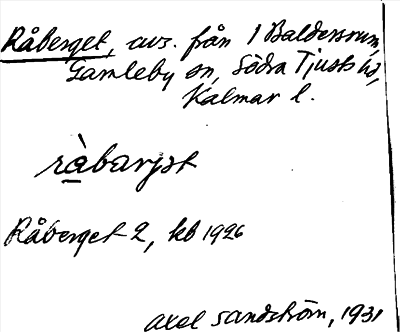 Råberget, avs. från 1 Baldersrum,
Gamleby sn, Södra Tjusts hd,
Kalmar l.
ràbarjət
Råberget 2, kb 1926
Axel Sandström, 1931